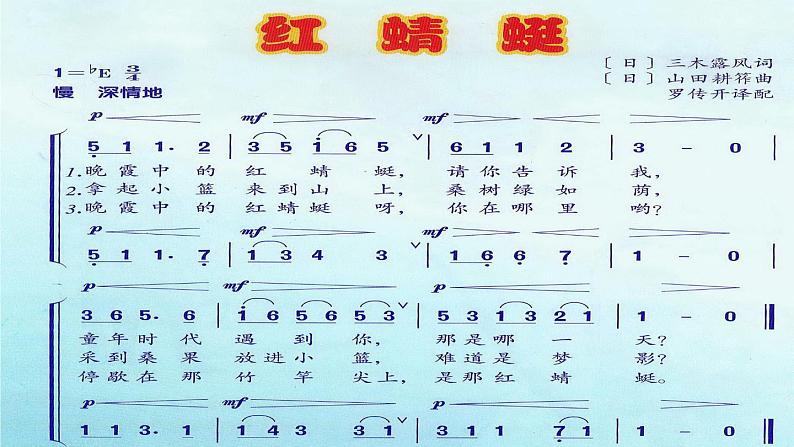 红 蜻 蜓
1=♭E 3/4
慢 深情地
〔日〕 三木露风词
〔日〕 山田耕筰曲
罗传开译配
p mf
5 1 1· 2 | 3 5 1 6 5 | 6 1 1 2 | 3 - 0
1. 晚霞中的 红 蜻 蜓, 请你告诉 我,
2. 拿起小篮 来到山 上, 桑树绿如 荫,
3. 晚霞中的 红蜻蜓 呀, 你在哪里 哟?
p mf
5 1 1· 7 | 1 3 4 3 | 1 6 6 7 | 1 - 0
p mf p
3 6 5· 6 | 1 6 5 6 5 3 | 5 3 1 3 2 1 | 1 - 0
童年时代 遇 到 你, 那是哪一 天?
采到桑果 放进小 篮, 难道是梦 影?
停歇在那 竹 竿 尖上, 是那红蜻 蜓。
p mf p
1 1 3· 1 | 3 4 3 3 1 | 3 1 1 7 | 1 - 0